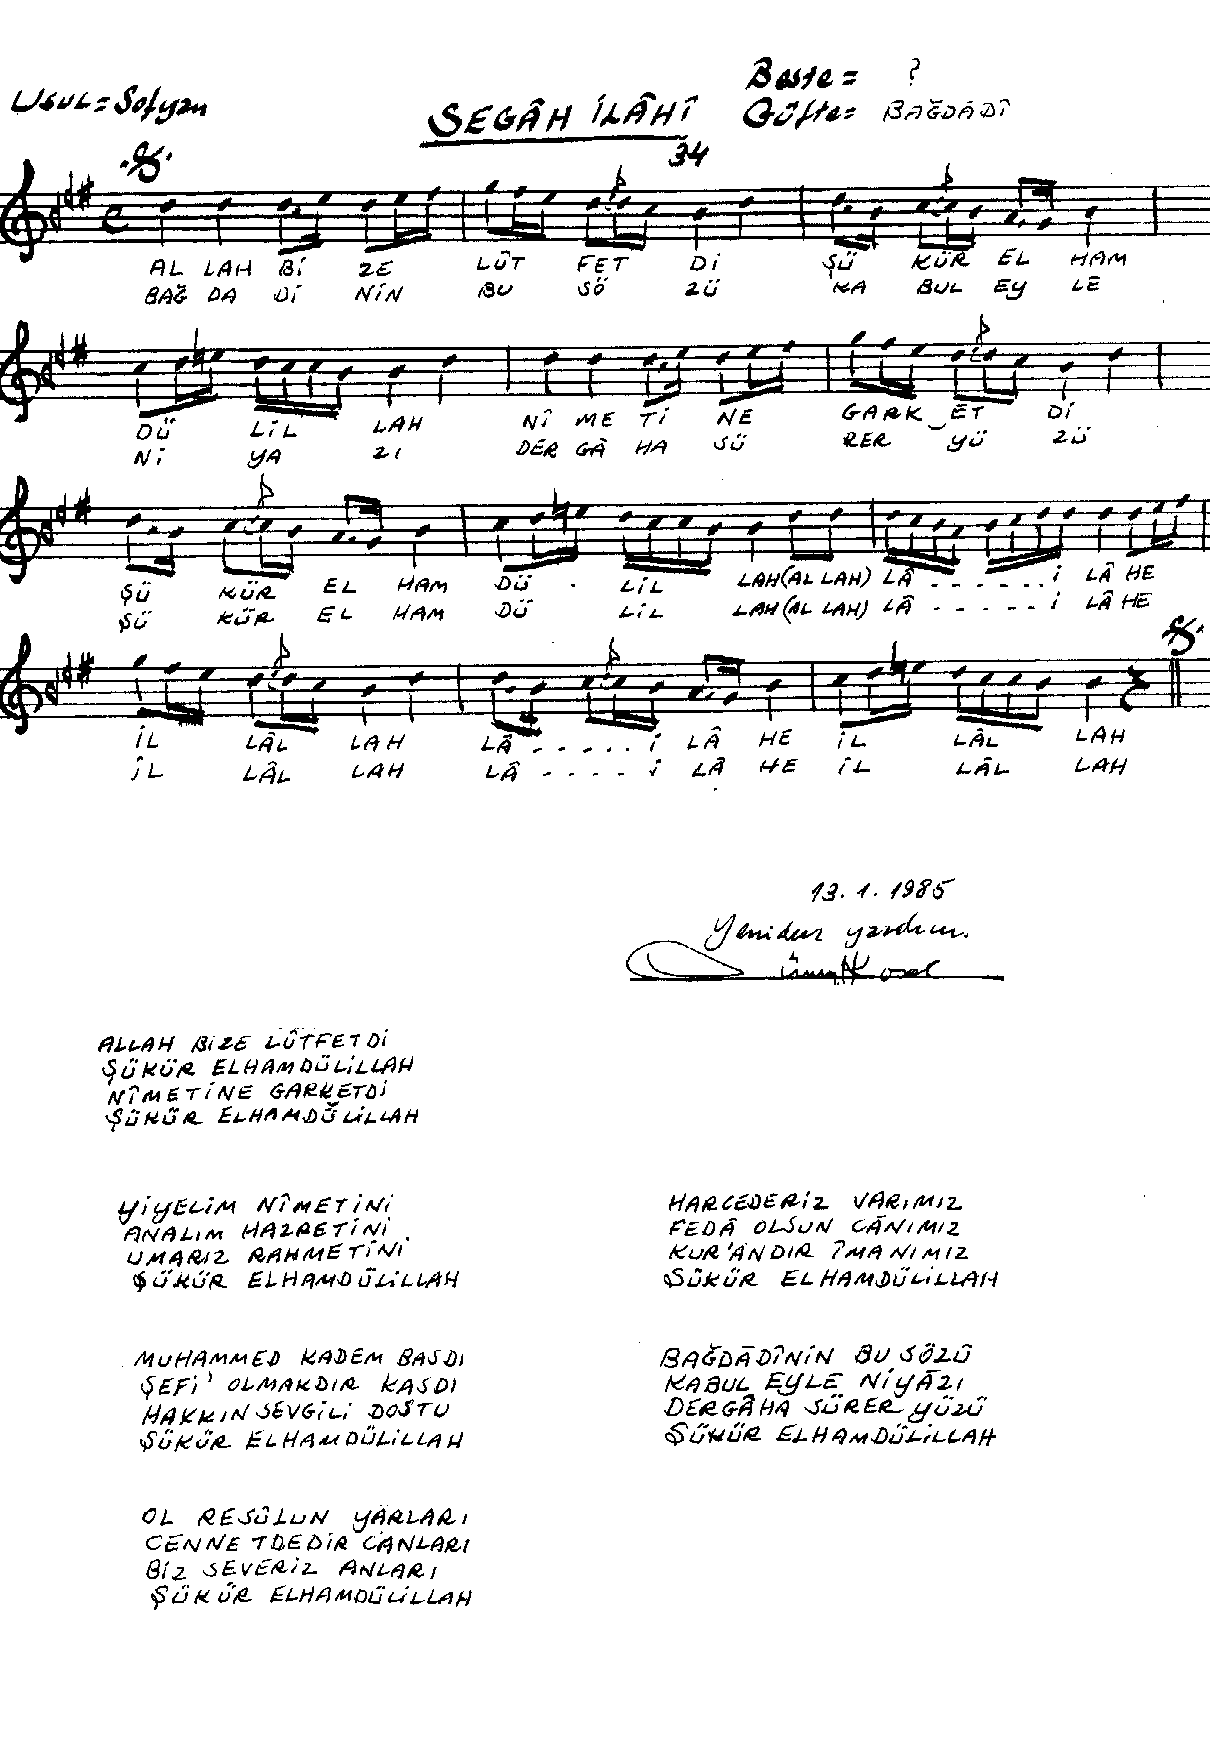 Usul = Sofyan
Beste = ?
SEGÂH İLÂHÎ
Güfte = BAĞDÂDÎ
34
AL LAH Bİ ZE LÛT FET Dİ ŞÜ KÜR EL HAM
BAĞ DA Dİ NİN BU SÖ ZÜ KA BUL EY LE
DÜ LİL LAH NÎ ME Tİ NE GARK ET Dİ
Nİ YA ZI DER GÂ HA SÜ RER YÜ ZÜ
ŞÜ KÜR EL HAM DÜ . LİL LAH (AL LAH) LÂ - - - - - - İ LÂ HE
ŞÜ KÜR EL HAM DÜ LİL LAH (AL LAH) LÂ - - - - - İ LÂ HE
İL LÂL LAH LÂ - - - - - İ LÂ HE İL LÂL LAH
İL LÂL LAH LÂ - - - - İ LÂ HE İL LÂL LAH
13.1.1985
Yeniden yazdım.
ALLAH BİZE LÛTFETDİ
ŞÜKÜR ELHAMDÜLİLLAH
NÎMETİNE GARKETDİ
ŞÜKÜR ELHAMDÜLİLLAH
YİYELİM NÎMETİNİ
ANALIM HAZRETİNİ
UMARIZ RAHMETİNİ
ŞÜKÜR ELHAMDÜLİLLAH
MUHAMMED KADEM BASDI
ŞEFİ' OLMAKDIR KASDI
HAKKIN SEVGİLİ DOSTU
ŞÜKÜR ELHAMDÜLİLLAH
OL RESÛLUN YÂRLARI
CENNETDEDİR CANLARI
BİZ SEVERİZ ANLARI
ŞÜKÜR ELHAMDÜLİLLAH
HARCEDERİZ VARIMIZ
FEDÂ OLSUN CÂNIMIZ
KUR'ANDIR ÎMANIMIZ
ŞÜKÜR ELHAMDÜLİLLAH
BAĞDÂDÎNİN BU SÖZÜ
KABUL EYLE NİYÂZI
DERGÂHA SÜRER YÜZÜ
ŞÜKÜR ELHAMDÜLİLLAH